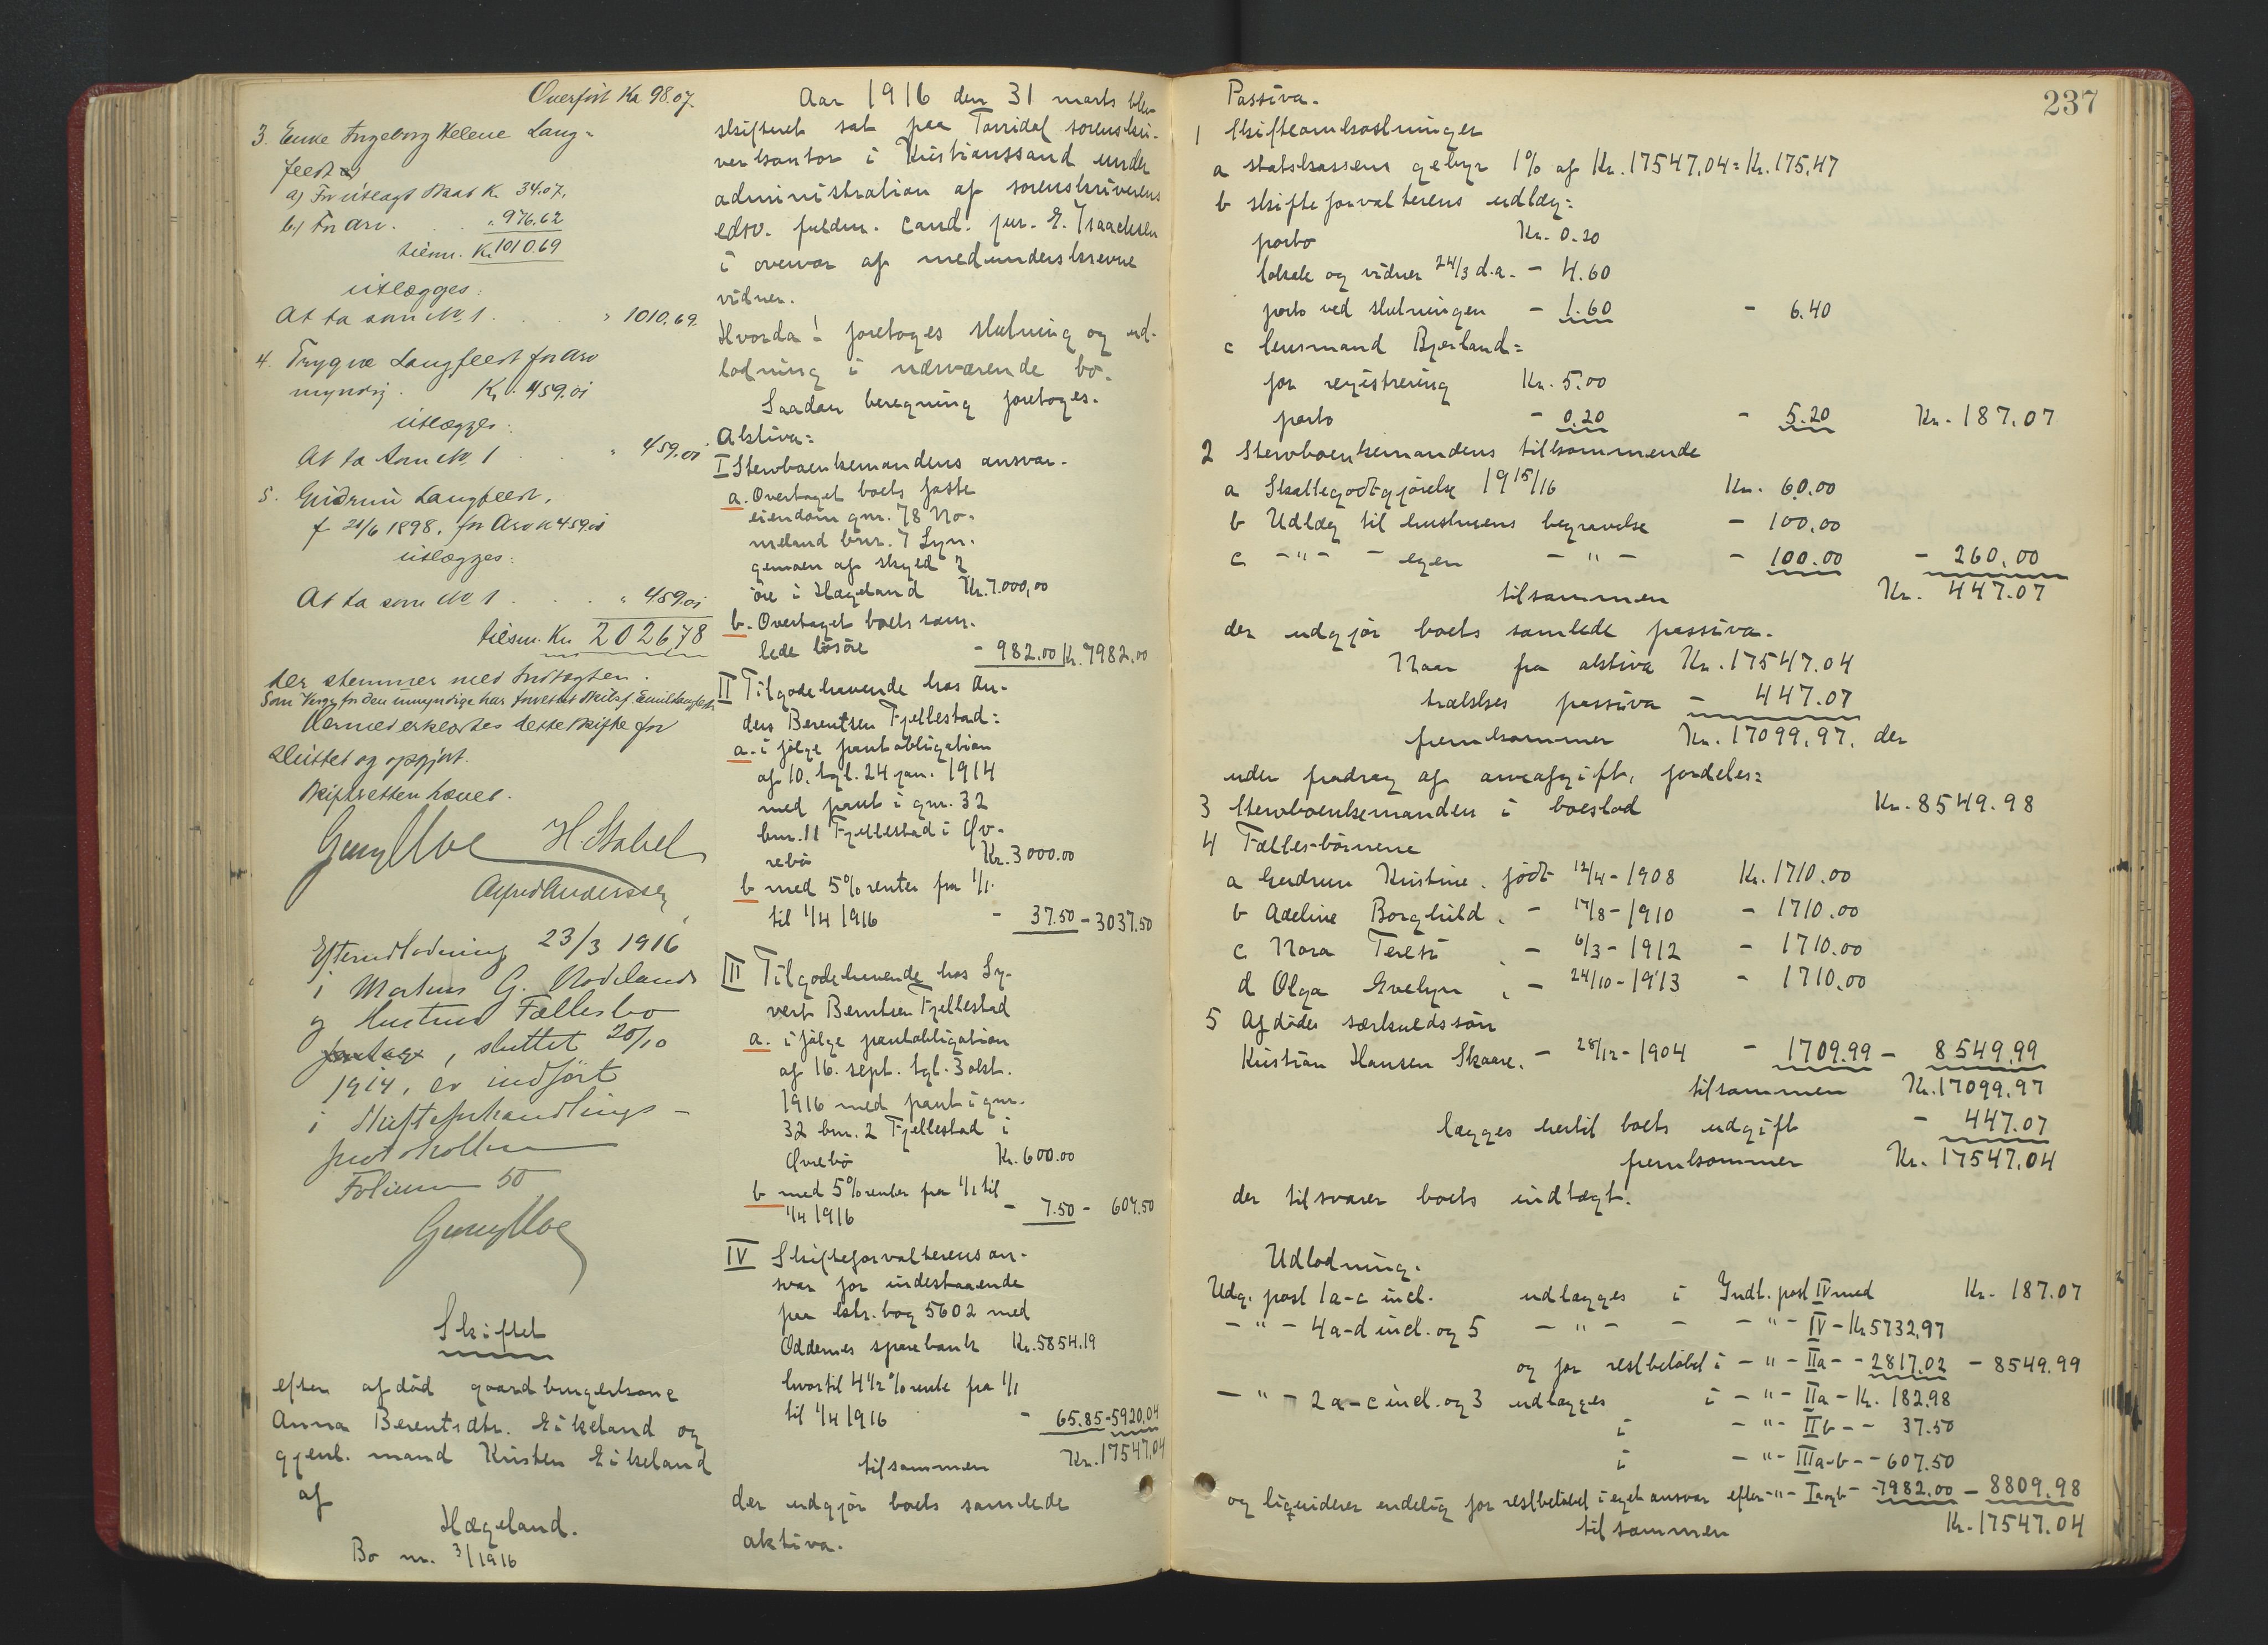 Overført Kr 98.07.
3. Enke Ingeborg Helene Lang=
feldt
a) For utlagt Skat Kr. 34.07,
b) For arv. . . „ 976.62
tilsm. Kr. 1010.69
utlægges:
At ta som No. 1 . . . „ 1010.69.
4. Trygve Langfeldt for arv
myndig. Kr. 459.01
utlægges:
At ta som No. 1 . . „ 459.01
5. Gudrun Langfeldt,
f. 21/6 1898, for Arv Kr 459.01
utlægges:
At ta som No. 1 . . . „ 459.01
tilsm. Kr. 2026,78
der stemmer med Indtægten.
Som Verge for den umyndige har forrettet Emil Langfeldt
Hermed erklærtes dette skifte for
sluttet og opgjort.
Skifteretten hævet.
H. Stabel
Alfred Anderssen
Efterudlodning 23/3 1916
i Mortens G. Rodelands
og Hustrus Fællesbo
, sluttet 20/10
1914, er indført
i Skifteforhandlings-
protokollen
Folium 50
Skiftet
efter afdød gaardbrugerkone
Anna Berentsdtr. Eikeland og
gjenl. mand Kristen Eikeland
af
Hægeland.
Bo nr. 3/1916
Aar 1916 den 31 marts blev
skifteret sat paa Torridal sorenskri-
verkontor i Kristianssand under
administration af sorenskriverens
edsv. fuldm. cand. jur. E. Isaachsen
i overvær af medunderskrevne
vidner.
Hvorda! foretoges slutning og ud-
lodning i nærværende bo.
Saadan beregning foretoges.
Aktiva:
I Stervboenkemandens ansvar.
a. Overtaget boets faste
eiendom gnr. 78 No-
meland bnr. 7 Lyn-
gemoen af skyld 2
øre i Hægeland Kr. 7.000,00
b. Overtaget boets sam-
lede løsøre - 982.00 Kr. 7982.00
II Tilgodehavende hos An-
ders Berentsen Fjellestad:
a. i følge pantobligation
af 10. tgl. 24 jan. 1914
med pant i gnr. 32
bnr. 11 Fjellestad i Øv-
rebø Kr. 3000.00
b med 5% renter fra 1/1
til 1/4 1916 - 37.50 - 3037.50
III Tilgodehavende hos Sy-
vert Berntsen Fjellestad
a. i følge pantobligation
af 16. sept. tgl. 3 okt.
1916 med pant i gnr.
32 bnr. 2 Fjellestad i
Øvrebø Kr. 600.00
b med 5% renter fra 1/1 til
1/4 1916 - 7.50 - 607.50
IV Skifteforvalterens an-
svar for indestaaende
paa ktr. bog 5602 med
Oddernes sparebank Kr. 5854.19
hvortil 4 1/2 % rente fra 1/1
til 1/4 1916 - 65.85 - 5920.04
tilsammen Kr. 17547.04
der udgjør boets samlede
aktiva.
237
Passiva.
1 Skifteomkostninger
a statskassens gebyr 1% af Kr. 17547,04 = Kr. 175,47
b skifteforvalterens udlæg:
porto Kr. 0.20
lokale og vidner 24/3 d.a. - 4.60
porto ved slutningen - 1.60 - 6.40
c lensmand Bjerland:
for registrering Kr. 5.00
porto - 0.20 - 5.20 Kr. 187.07
2 Stervboenkemandens tilkommende
a Skattegodtgjørelse 1915/16 Kr. 60.00
b Udlæg til hustruens begravelse - 100.00
c - " - - egen - " - - 100.00 - 260.00
tilsammen Kr. 447.07
der udgjør boets samlede passiva.
Naar fra aktiva Kr. 17547.04
trækkes passiva - 447.07
fremkommer Kr. 17099.97. der
uden fradrag af arveafgift, fordeles:
3 Stervboenkemanden i boeslod Kr. 8549.98
4 Fælles-børnene
a Gudrun Kristine. født 12/4-1908 Kr. 1710.00
b Adeline Borghild. - 17/8-1910 - 1710.00
c Nora Terese . - 6/3-1912 - 1710.00
d Olga Evelyn . - 24/10-1913 - 1710.00
5 Afdødes særkuldssøn
Kristian Hansen Skaare. - 28/12-1904 - 1709.99 - 8549.99
tilsammen Kr. 17099.97
lægges hertil boets udgift - 447.07
fremkommer Kr. 17547.04
der tilsvarer boets indtægt.
Udlodning.
Udg. post 1a-c incl. udlægges i Indt. post IV med Kr. 187.07
- " - 4a-d incl. og 5 - " - - - " - IV - Kr 5732,97
og for restbeløbet i - " - IIa - - 2817.02 - 8549.99
- " - 2a-c incl. og 3 udlægges i - " - IIa - Kr. 182.98
i - " - IIb - - 37.50
i - " - IIIa-b - - 607.50
og liqviderer endelig for restbeløbet i eget ansvar efter - " - Iaogb - 7982.00 - 8809.98
tilsammen Kr. 17547.04